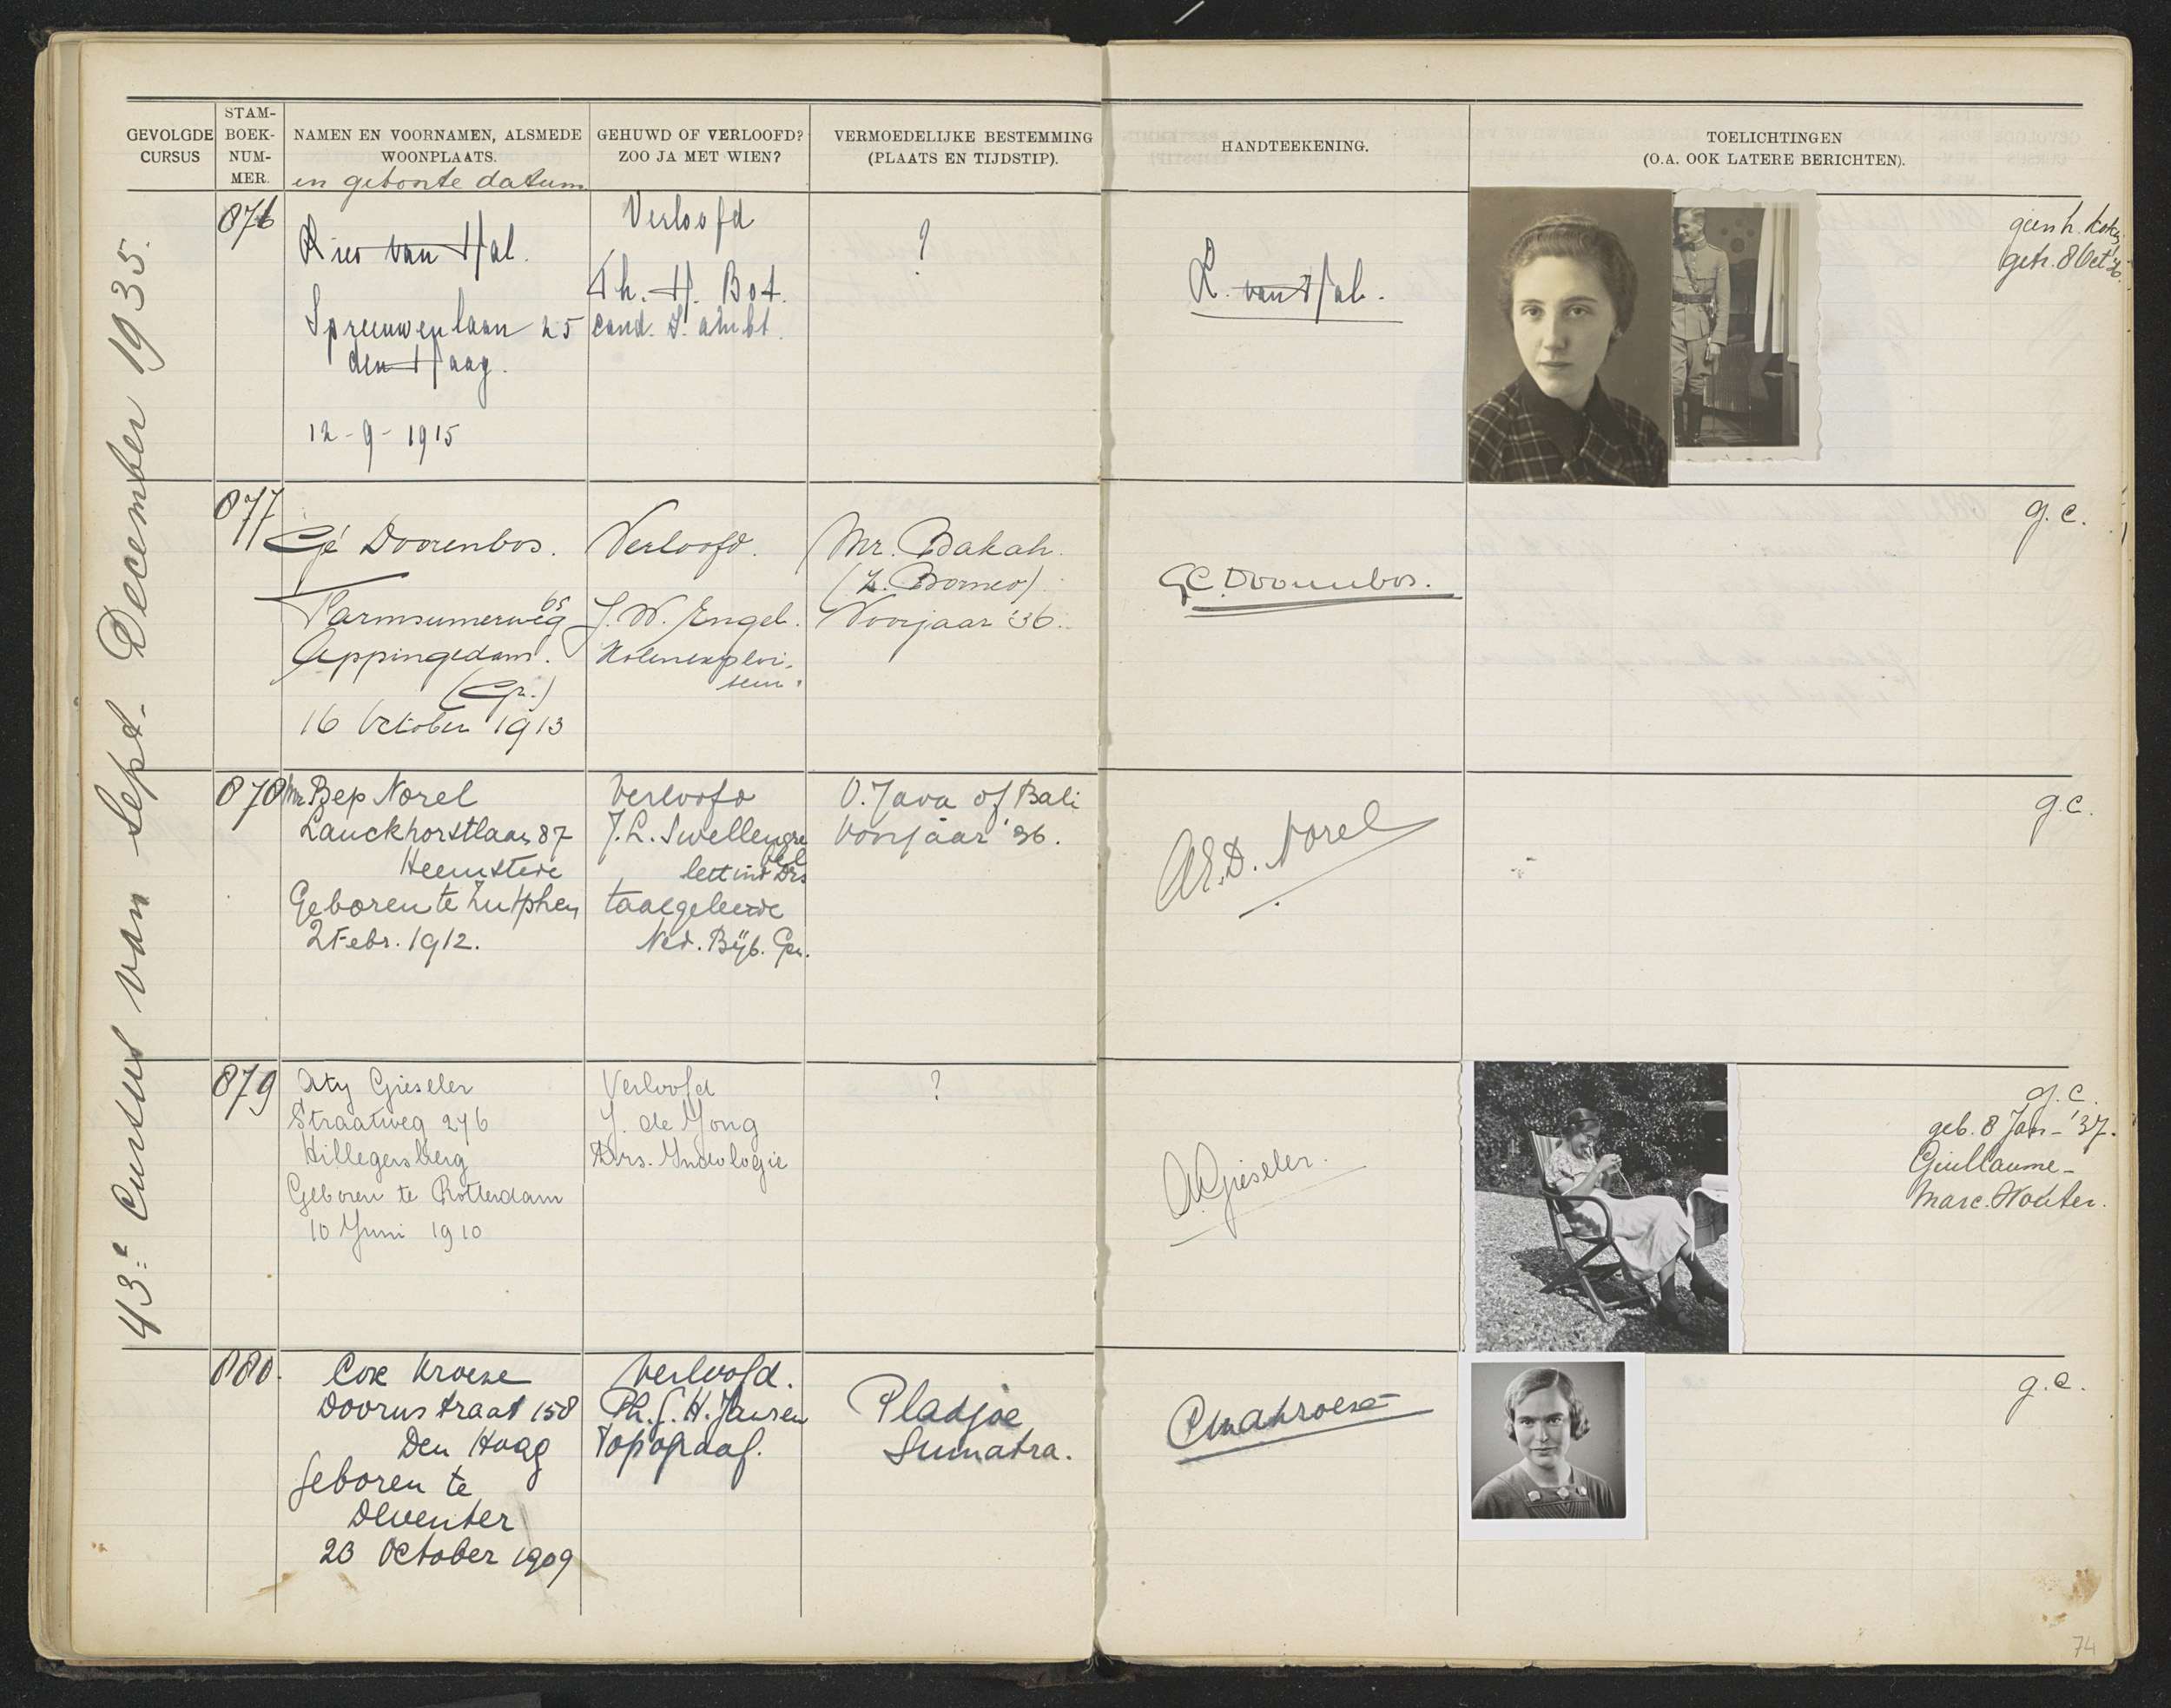 GEVOLGDE CURSUS
STAM-BOEK-NUM-MER.
NAMEN EN VOORNAMEN, ALSMEDE WOONPLAATS.
en geboorte datum
GEHUWD OF VERLOOFD? ZOO JA MET WIEN?
VERMOEDELIJKE BESTEMMING (PLAATS EN TIJDSTIP).
HANDTEEKENING.
TOELICHTINGEN
(O.A. OOK LATERE BERICHTEN).
43e Cursus van Sept. December 1935.
876
van Hal.
Spreeuwenlaan 25
den Haag.
12-9-1915
Verloofd
Th. H. Bot.
cand. I. ambt.
?
van Hal.
getr. 8 Oct
877
Gé Doorenbos.
Farmsumerweg 65
Appingedam.
(Gr.)
16 October 1913
Verloofd.
J. W. Engel.
Mr. Bakah.
(Z. Borneo)
Voorjaar '36.
G.C. Doorenbos.
g.c.
878
Mr Bep Norel
Lauckhorstlaan 87
Heemstede
Geboren te Zutphen
2 Febr. 1912.
Verloofd
J.L. Swellengrebel
lett ind Drs
taalgeleerde
Ned. Bijb. Gen.
O. Java of Bali
Voorjaar '36.
A.E.D. Norel
g.c.
879
Gieseler
Straatweg 276
Hillegersberg
Geboren te Rotterdam
10 Juni 1910
Verloofd
J. de Jong
Drs. Indologie
?
A. Gieseler.
g.c.
geb. 8 Jan- '37.
Guillaume-
Marc. Wouter.
880.
Cox Kroese
Doornstraat 158
Den Haag
Geboren te
Deventer
23 October 1909
Verloofd.
Ph. J. H. Jansen
Topograaf.
Pladjoe
Sumatra.
Kroese
g.c.
74